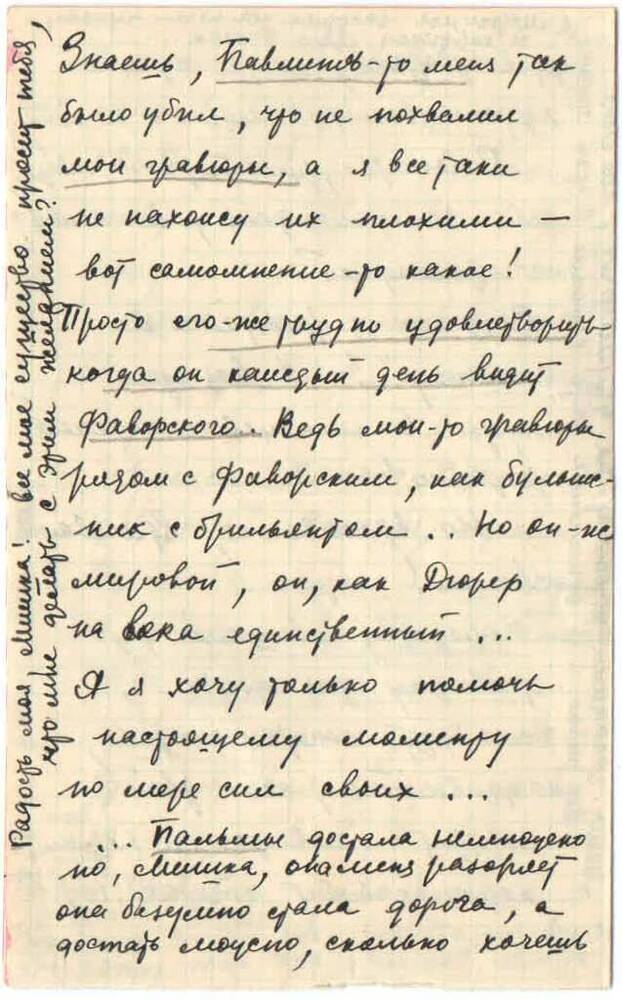 Знаешь, Павлинов-то меня так
было убил, что не похвалил
мои гравюры, а я все таки
не нахожу их плохими —
вот самомнение-то какое!
Просто его-же трудно удовлетворить
когда он каждый день видит
Фаворского.. Ведь мои-то гравюры
рядом с Фаворским, как булыж-
ник с брильянтом.. Но он-же
мировой, он, как Дюрер
на века единственный...
А я хочу только помочь
настоящему моменту
по мере сил своих...
... Пальмы достала немножечко
но, Мишка, она меня разоряет
она безумно стала дорога, а
достать можно, сколько хочешь
Радость моя, Мишка! все мое существо просит тебя,
что мне делать с этим желанием?